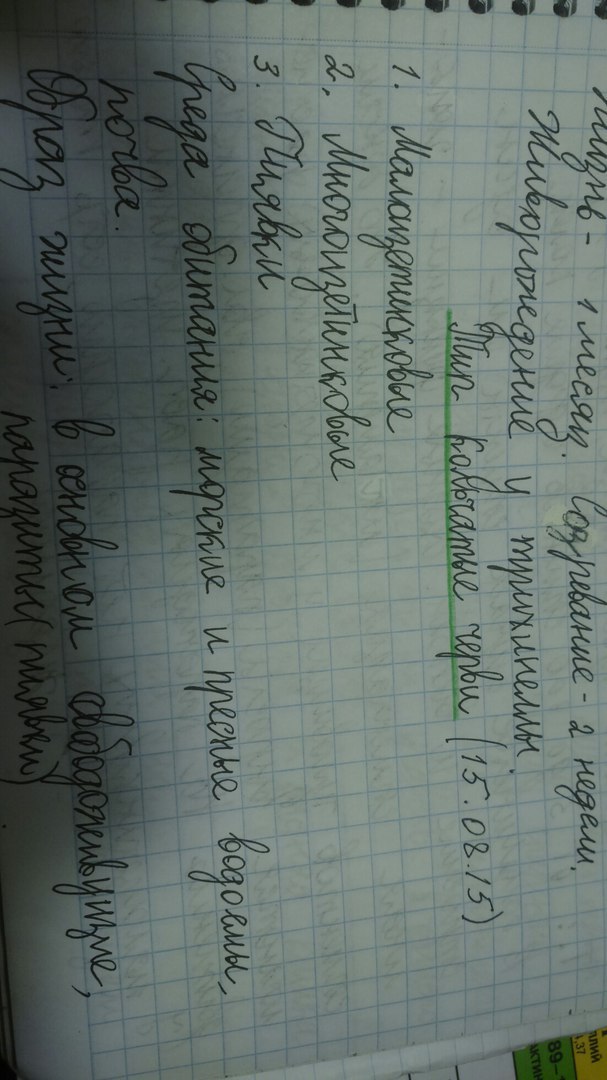 жизнь - 1 месяц. Созревание - 2 недели.
Живорождение у трихинеллы.
Тип Кольчатые черви (15.08.15)
1. Малощетинковые
2. Многощетинковые
3. Пиявки
Среда обитания: морские и пресные водоемы,
почва.
Образ жизни: в основном свободоживущие,
паразиты (пиявки)
89-